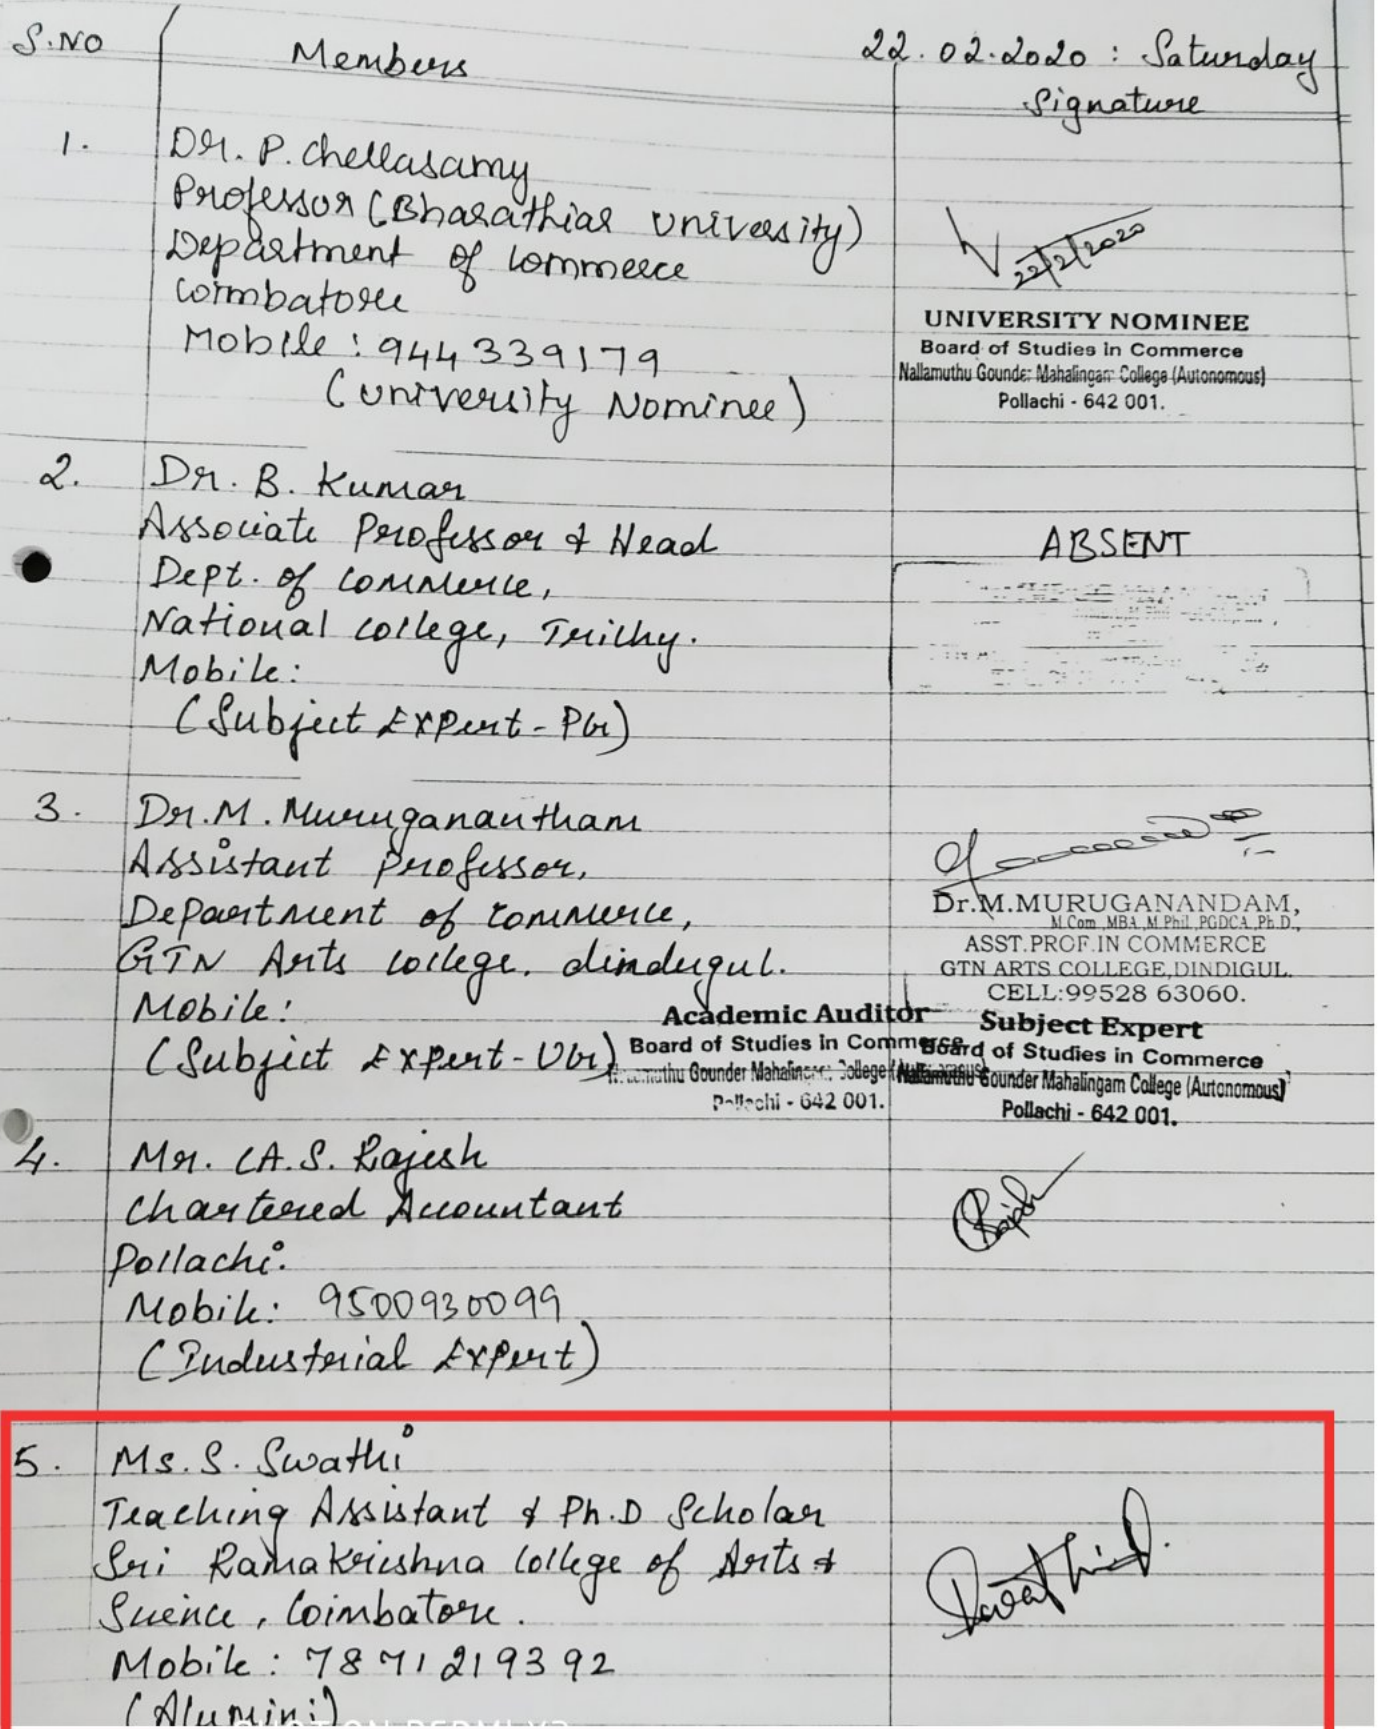 S.NO
Members
22.02.2020 : Saturday
Signature
1.
Dr. P. Chellasamy
Professor (Bharathiar University)
Department of Commerce
Coimbatore
Mobile : 944339179
(University Nominee)
22/2/2020
UNIVERSITY NOMINEE
Board of Studies in Commerce
Nallamuthu Gounder Mahalingam College (Autonomous)
Pollachi - 642 001.
2.
Dr. B. Kumar
Associate Professor & Head
Dept. of Commerce,
National College, Trichy.
Mobile:
(Subject Expert - PG)
ABSENT
3.
Dr. M. Muruganantham
Assistant Professor,
Department of Commerce,
GTN Arts College. dindugul.
Mobile:
(Subject Expert - UG)
Dr.M.MURUGANANDAM,
M.Com.,MBA.,M.Phil.,PGDCA.,Ph.D.,
ASST.PROF.IN COMMERCE
GTN ARTS COLLEGE,DINDIGUL.
CELL:99528 63060.
Academic Auditor
Board of Studies in Commerce
Gounder Mahalingam College
Pollachi - 642 001.
Subject Expert
Board of Studies in Commerce
Nallamuthu Gounder Mahalingam College (Autonomous)
Pollachi - 642 001.
4.
Mr. CA.S. Rajesh
Chartered Accountant
Pollachi.
Mobile: 9500930099
(Industerial Expert)
5.
Ms. S. Swathi
Teaching Assistant & Ph.D Scholar
Sri Ramakrishna College of Arts &
Science, Coimbatore.
Mobile : 7871219392
(Alumini)
Swathi.S.